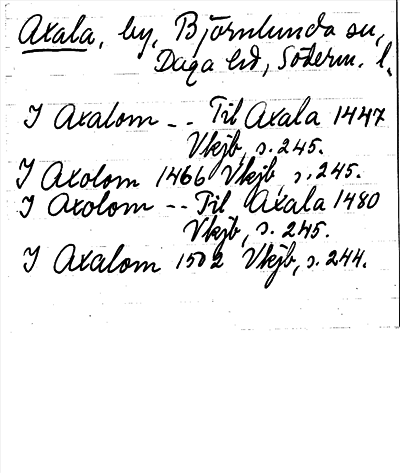 Axala, by, Björnlunda sn,
Daga hd, Söderm. l.
I Axalom -- Til Axala 1447
Vkjb, s. 245.
I Axolom 1466 Vkjb, s. 245.
I Axolom -- Til Axala 1480
Vkjb, s. 245.
I Axalom 1502 Vkjb, s. 244.